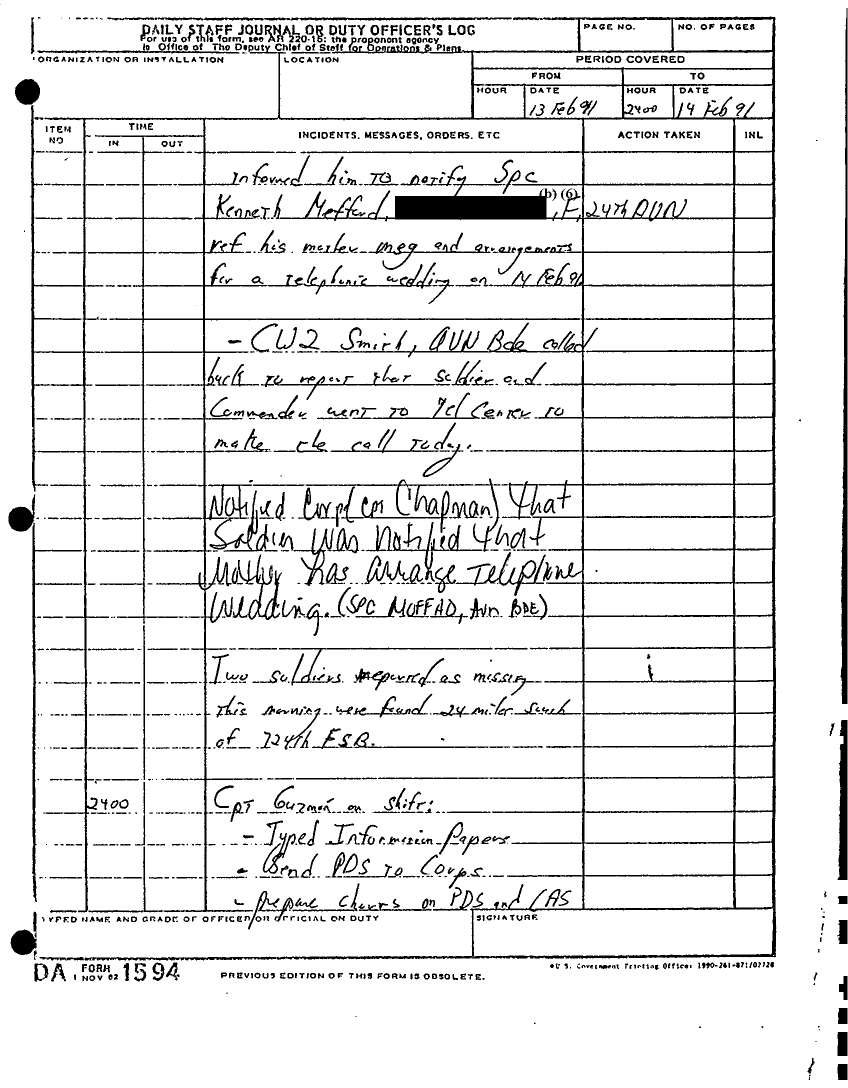 DAILY STAFF JOURNAL OR DUTY OFFICER'S LOG
For use of this form, see AR 220-15; the proponent agency
is Office of The Deputy Chief of Staff for Operations & Plans.
PAGE NO.
NO. OF PAGES
ORGANIZATION OR INSTALLATION
LOCATION
PERIOD COVERED
FROM
TO
HOUR
DATE
HOUR
DATE
13 Feb 91
2400
14 Feb 91
ITEM NO
TIME
IN
OUT
INCIDENTS, MESSAGES, ORDERS, ETC
ACTION TAKEN
INL
Informed him TO notify Spc
(b) (6)
Kenneth Mefford, , F, 24th AVN
ref his msg and arrangements
for a telephonic wedding on 14 Feb 91
- CW2 Smith, AVN Bde called
back to report that soldier and
Commander went TO Tel Center to
make the call today.
Notified Corp (Cpt Chapman) that
Soldier was notified that
Mother has arrange Telephone
Wedding. (SPC MOFFAD, Avn BDE)
Two soldiers reported as missing
this morning were found 24 miles South
of 724th FSB.
2400
Cpt Guzman on shift:
- Typed Information Papers
- Send PDS to Corps
- prepare charts on PDS and CAS
TYPED NAME AND GRADE OF OFFICER OR OFFICIAL ON DUTY
SIGNATURE
DA FORM 1594
1 NOV 62
PREVIOUS EDITION OF THIS FORM IS OBSOLETE.
U.S. Government Printing Office: 1990-261-871/